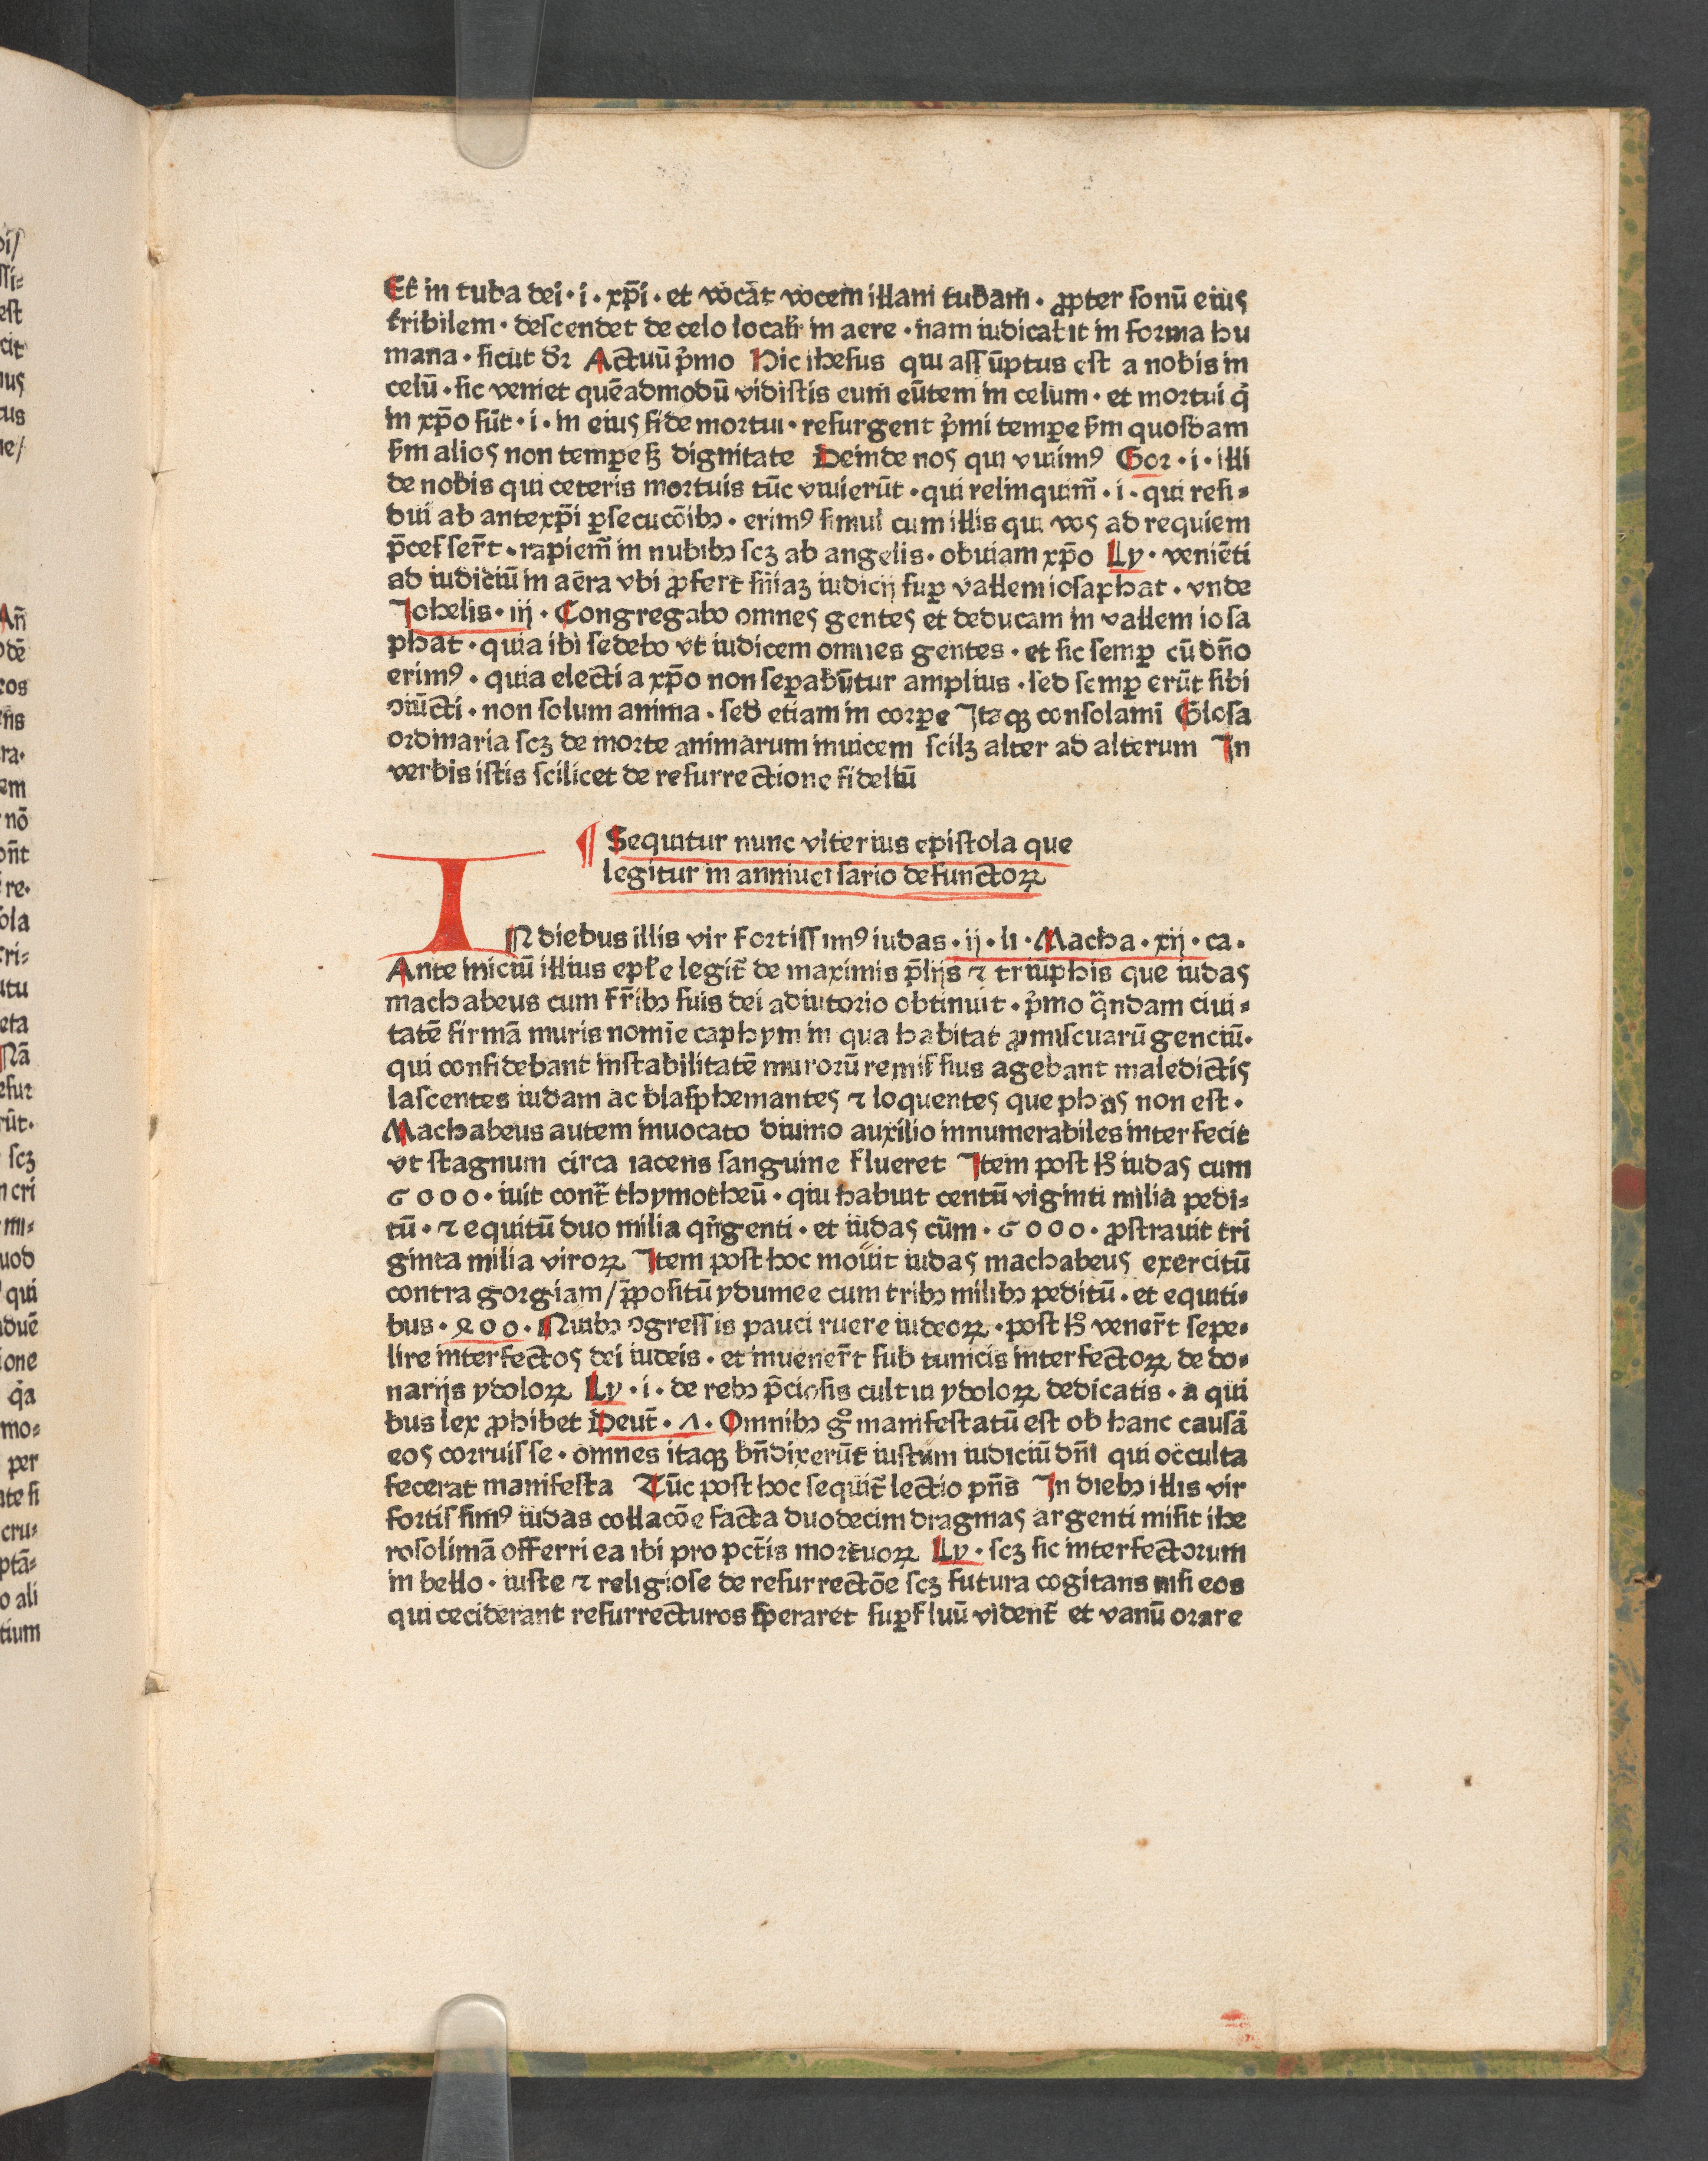 Et in tuba dei · i · xp̄i · et vocāt vocem illam tubam · ꝓpter sonū eius
tribilem · descendet de celo localiť in aere · nam iudicabit in forma hu
mana · sicut dr̄ Actuū p̓mo Hic ihesus qui assūptus est a nobis in
celū · sic veniet quēadmodū vidistis eum eūtem in celum · et mortui q̓
in xp̄o sūt · i · in eius fide mortui · resurgent p̓mi tempꝑe ẜm quosdam
ẜm alios non tempꝑe sꝫ dignitate Deinde nos qui viuimꝰ Gor · i · illi
de nobis qui ceteris mortuis tūc viuierūt · qui relinquim̄ · i · qui resi⸗
dui ab antexp̄i ꝑsecucōibꝫ · erimꝰ simul cum illis qui nos ad requiem
p̄cesser̄t · rapiem̄ in nubibꝫ scꝫ ab angelis · obuiam xp̄o Ly · veniēti
ad iudiciū in aēra vbi ꝓfert sn̄iaꝫ iudicij suꝑ vallem iosaphat · vnde
Johelis · iij · Congregabo omnes gentes et deducam in vallem iosa
phat · quia ibi sedebo vt iudicem omnes gentes · et sic semꝑ cū dn̄o
erimꝰ · quia electi a xp̄o non seꝑabūtur amplius · sed semꝑ erūt sibi
ꝯiūcti · non solum anima · sed etiam in corꝑe Itaqꝫ consolamī Glosa
ordinaria scꝫ de morte animarum inuicem scilꝫ alter ad alterum In
verbis istis scilicet de resurrectione fideliū
¶ Sequitur nunc vlterius epistola que
legitur in anniuersario defunctoꝝ
IN diebus illis vir fortissimꝰ iudas · ij · li · Macha · xij · ca ·
Ante iniciū illius epl̄e legit̄ de maximis p̄lijs ⁊ triūphis que iudas
machabeus cum fr̄ibꝫ suis dei adiutorio obtinuit · p̓mo q̄ndam ciui⸗
tatē firmā muris nomīe caphym in qua habitat ꝓmiscuarū genciū ·
qui confidebant instabilitatē murorū remissius agebant maledictis
lascentes iudam ac blasphemantes ⁊ loquentes que phas non est ·
Machabeus autem inuocato diuino auxilio innumerabiles interfecit
vt stagnum circa iacens sanguine flueret Item post hͦ iudas cum
6000 · iuit cont̄ thymotheū · qui habuit centū viginti milia pedi⸗
tū · ⁊ equitū duo milia qn̄genti · et iudas cūm · 6000 · ꝓstrauit tri
ginta milia viroꝝ Item post hoc mouit iudas machabeus exercitū
contra gorgiam / p̄positū ydumee cum tribꝫ milibꝫ peditū · et equiti⸗
bus · 400 · Quibꝫ ꝯgressis pauci ruere iudeoꝝ · post hͦ vener̄t sepe⸗
lire interfectos dei iudeis · et inuener̄t sub tunicis interfectoꝝ de do⸗
narijs ydoloꝝ Ly · i · de rebꝫ p̄ciosis cultui ydoloꝝ dedicatis · a qui
bus lex ꝓhibet Deut̄ · Λ · Omnibꝫ gͦ manifestatū est ob hanc causā
eos corruisse · omnes itaqꝫ bn̄dixerūt iustum iudiciū dn̄i qui occulta
fecerat manifesta Tūc post hoc sequit̄ lectio pn̄s In diebꝫ illis vir
fortissimꝰ iudas collacōe facta duodecim dragmas argenti misit ihe
rosolimā offerri ea ibi pro pct̄is mortuoꝝ Ly · scꝫ sic interfectorum
in bello · iuste ⁊ religiose de resurrectōe scꝫ futura cogitans nisi eos
qui ceciderant resurrecturos speraret suꝑfluū videnť et vanū orare